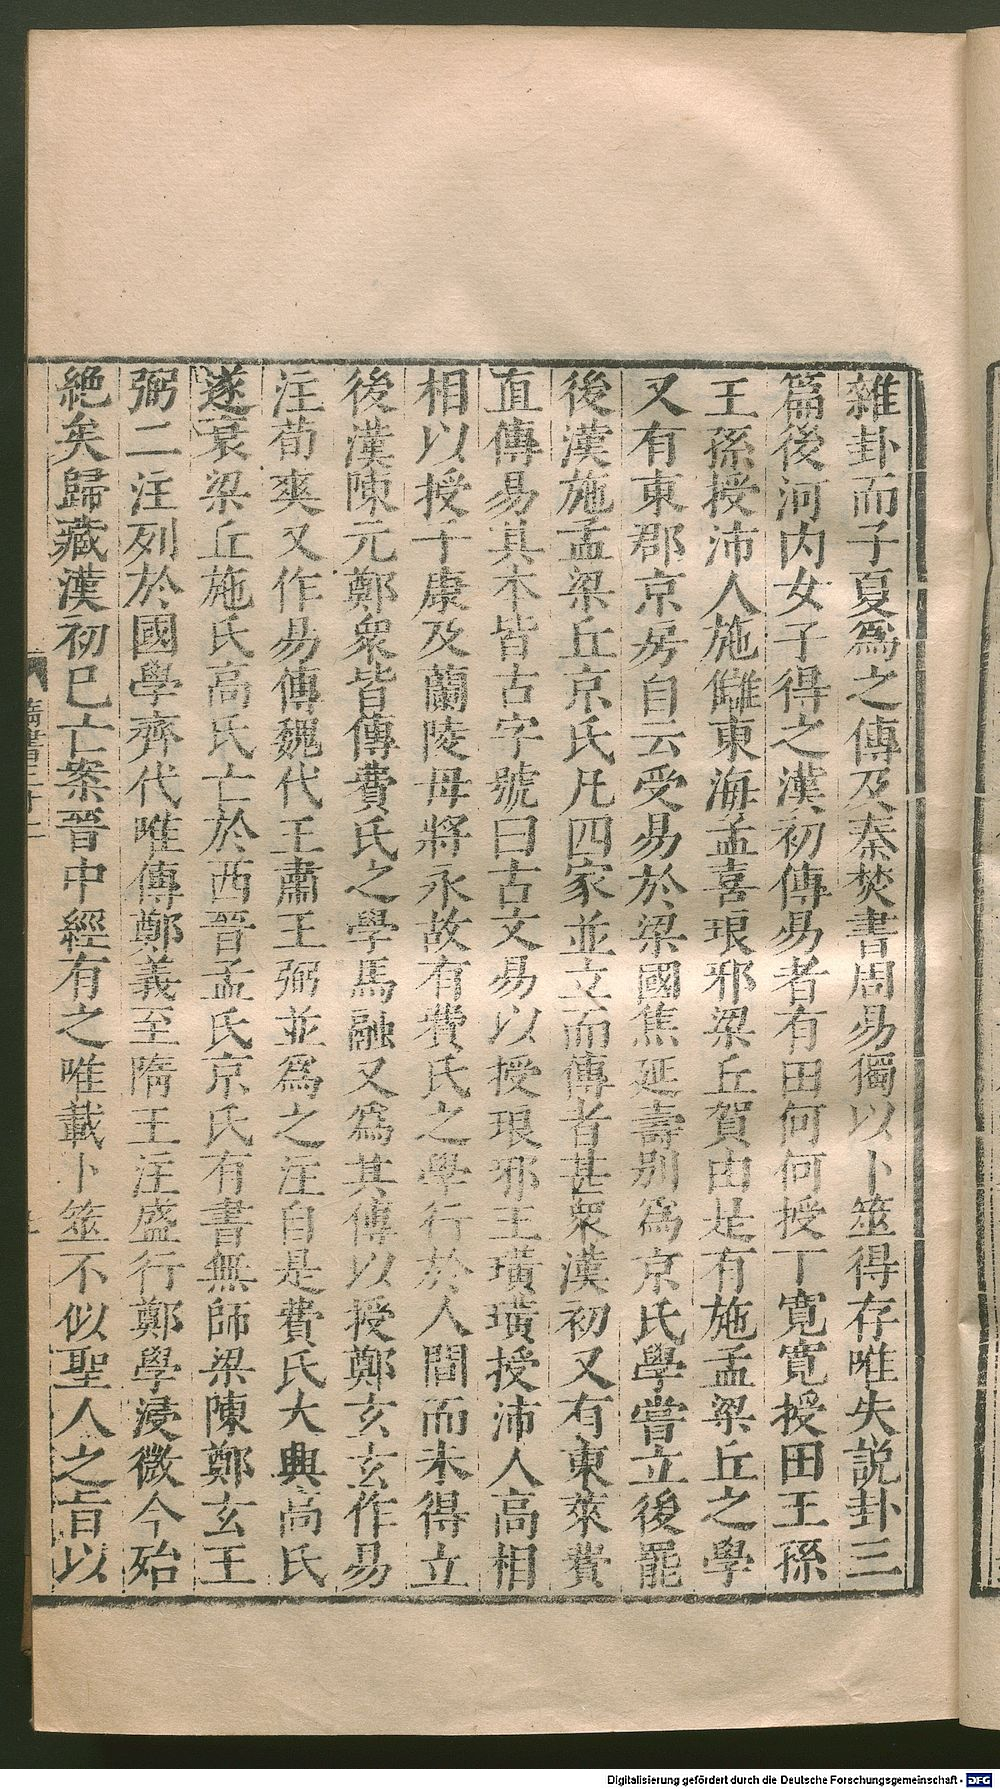 雜卦而子夏爲之傳及秦焚書周易獨以卜筮得存唯失説卦三
篇後河内女子得之漢初傳易者有田何何授丁寛寛授田王孫
王孫授沛人施讎東海孟喜琅邪梁丘賀由是有施孟梁丘之學
又有東郡京房自云受易於梁國焦延壽別爲京氏學嘗立後罷
後漢施孟梁丘京氏凡四家並立而傳者甚衆漢初又有東萊費
直傳易其本皆古字號曰古文易以授琅邪王璜璜授沛人高相
相以授子康及蘭陵毋將永故有費氏之學行於人間而未得立
後漢陳元鄭衆皆傳費氏之學馬融又爲其傳以授鄭玄玄作易
注荀爽又作易傳魏代王肅王弼並爲之注自是費氏大興高氏
遂衰梁丘施氏高氏亡於西晉孟氏京氏有書無師梁陳鄭玄王
弼二注列於國學齊代唯傳鄭義至隋王注盛行鄭學浸微今殆
絶矣歸藏漢初已亡案晉中經有之唯載卜筮不似聖人之旨以
Digitalisierung gefördert durch die Deutsche Forschungsgemeinschaft - DFG